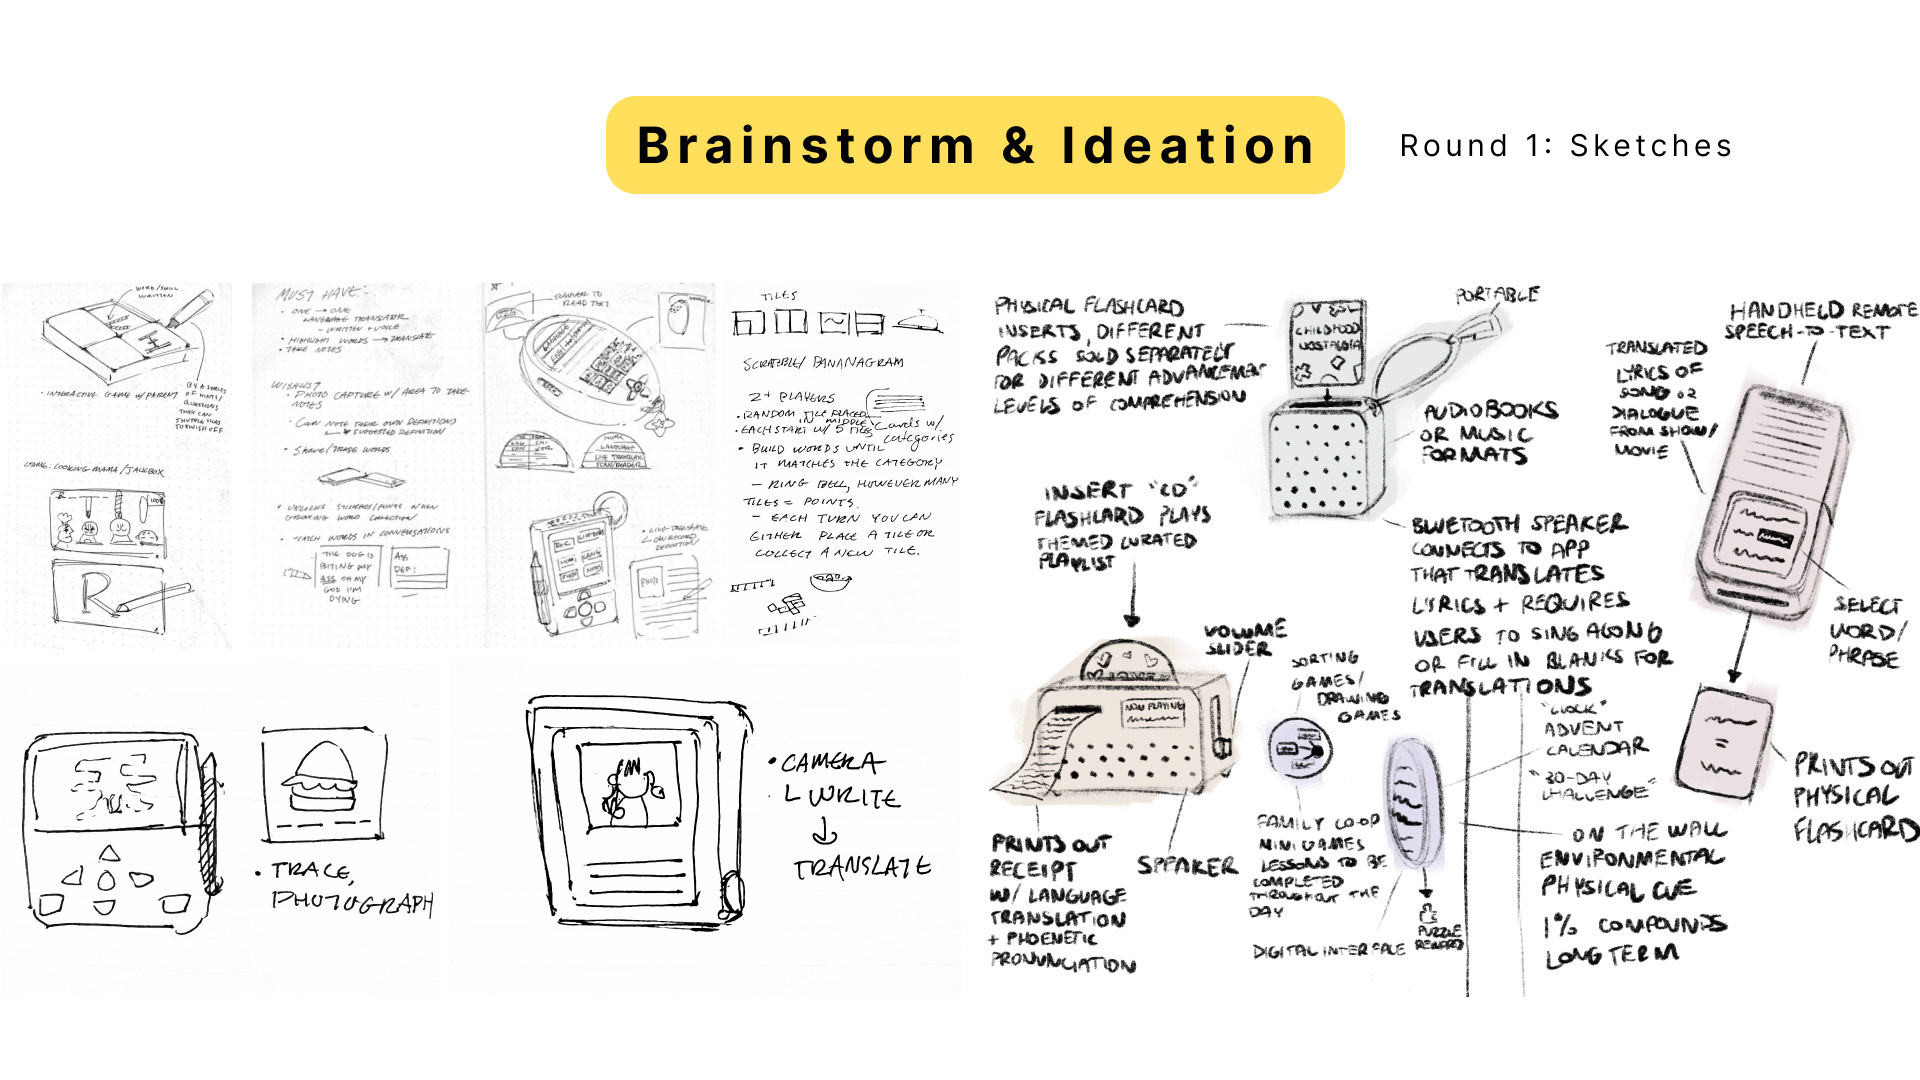 Brainstorm & Ideation
Round 1: Sketches
WORD/SKILL
WRITTEN
• INTERACTIVE GAME W/ PARENT
BY A SERIES
OF HINTS/
QUESTIONS
THEY CAN
COOKING MAMA/JACKBOX
R
MUST HAVE:
• ONE → ONE
LANGUAGE TRANSLATOR
- WRITTEN + VOICE
• HIGHLIGHT WORDS → TRANSLATE
• TAKE NOTES
WISHLIST
• PHOTO CAPTURE W/ AREA TO TAKE
NOTES
• CAN NOTE THEIR OWN DEFINITIONS
SUGGESTED DEFINITION
• SHARE/TRADE WORDS
• UNLOCKS STICKERS/FONTS WHEN
GROWING WORD COLLECTION
• CATCH WORDS IN CONVERSATIONS
THE DOG IS
BITING MY
ASS OH MY
GOD I'M
DYING
ASS
DEF:
SCANNER TO
READ TEXT
LANGUAGE
LIVE TRANSLATE
SCAN/READER
PHOTO
• LIVE TRANSLATE
L CAN RECORD
DEFINITION
TILES
SCRABBLE/ BANANAGRAM
2+ PLAYERS
• RANDOM TILE PLACED
IN MIDDLE
• EACH START W/ 5 TILES
Cards w/
categories
• BUILD WORDS UNTIL
IT MATCHES THE CATEGORY
- RING BELL, HOWEVER MANY
TILES = POINTS.
- EACH TURN YOU CAN
EITHER PLACE A TILE OR
COLLECT A NEW TILE.
• TRACE,
PHOTOGRAPH
• CAMERA
L WRITE
TRANSLATE
PHYSICAL FLASHCARD
INSERTS, DIFFERENT
PACKS SOLD SEPARATELY
FOR DIFFERENT ADVANCEMENT
LEVELS OF COMPREHENSION
CHILDHOOD
NOSTALGIA
PORTABLE
AUDIOBOOKS
OR MUSIC
FORMATS
BLUETOOTH SPEAKER
CONNECTS TO APP
THAT TRANSLATES
LYRICS + REQUIRES
USERS TO SING ALONG
OR FILL IN BLANKS FOR
TRANSLATIONS
HANDHELD REMOTE
SPEECH-TO-TEXT
TRANSLATED
LYRICS OF
SONG OR
DIALOGUE
FROM SHOW/
MOVIE
SELECT
WORD/
PHRASE
PRINTS OUT
PHYSICAL
FLASHCARD
INSERT "CD"
FLASHCARD PLAYS
THEMED CURATED
PLAYLIST
NOW PLAYING
VOLUME
SLIDER
PRINTS OUT
RECEIPT
W/ LANGUAGE
TRANSLATION
+ PHOENETIC
PRONUNCIATION
SPEAKER
SORTING
GAMES/
DRAWING
GAMES
FAMILY CO OP
MINI GAMES
LESSONS TO BE
COMPLETED
THROUGHOUT THE
DAY
DIGITAL INTERFACE
PUZZLE
REWARD
"CLOCK"
ADVENT
CALENDAR
"30-DAY
CHALLENGE"
ON THE WALL
ENVIRONMENTAL
PHYSICAL CUE
1% COMPOUNDS
LONG TERM